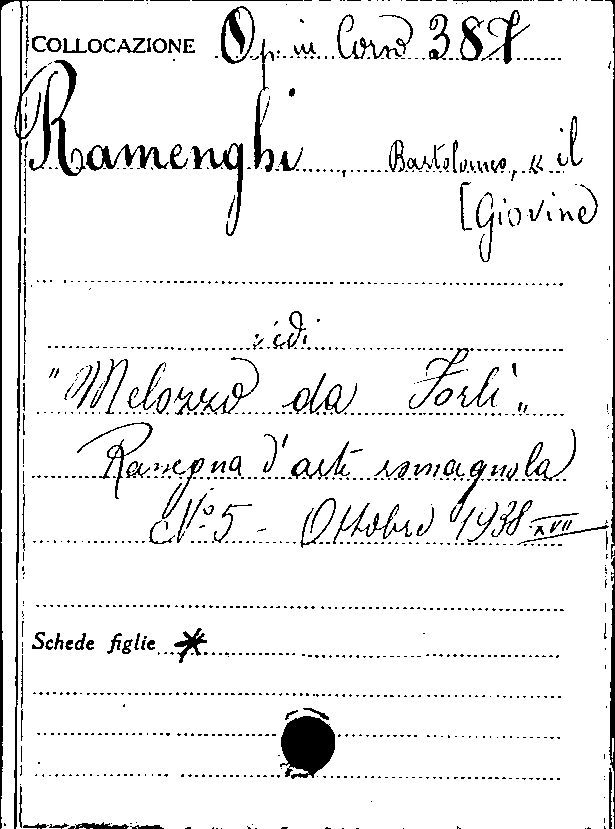 COLLOCAZIONE Op. in Corso 387
Ramenghi, Bartolomeo, « il
[Giovine
vedi
"Melozzo da Forlì„
Rassegna d'arte romagnola
N.º 5 - Ottobre 1938 XVII
Schede figlie *